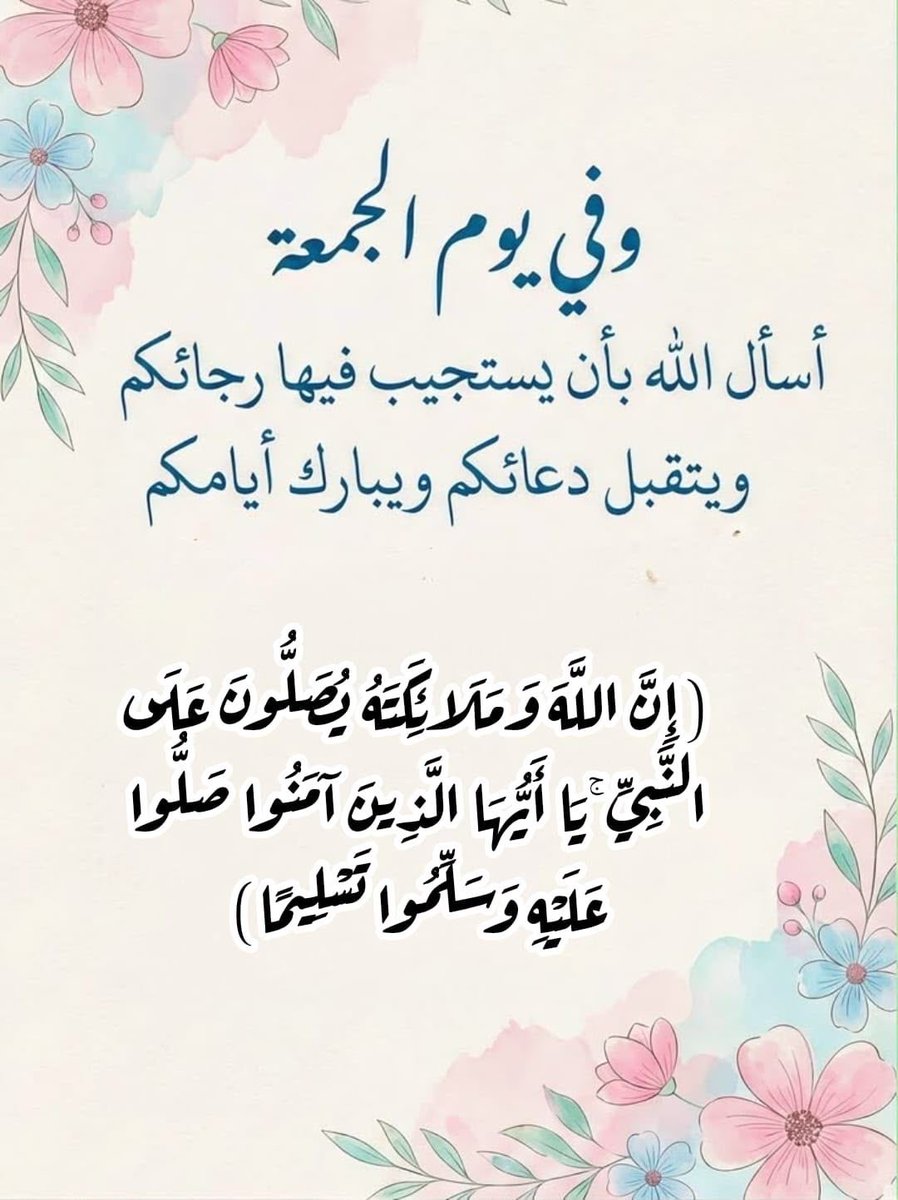 وفي يوم الجمعة
أسأل الله بأن يستجيب فيها رجائكم
ويتقبل دعائكم ويبارك أيامكم
(إِنَّ اللَّهَ وَمَلَائِكَتَهُ يُصَلُّونَ عَلَى
النَّبِيِّ ۚ يَا أَيُّهَا الَّذِينَ آمَنُوا صَلُّوا
عَلَيْهِ وَسَلِّمُوا تَسْلِيمًا)